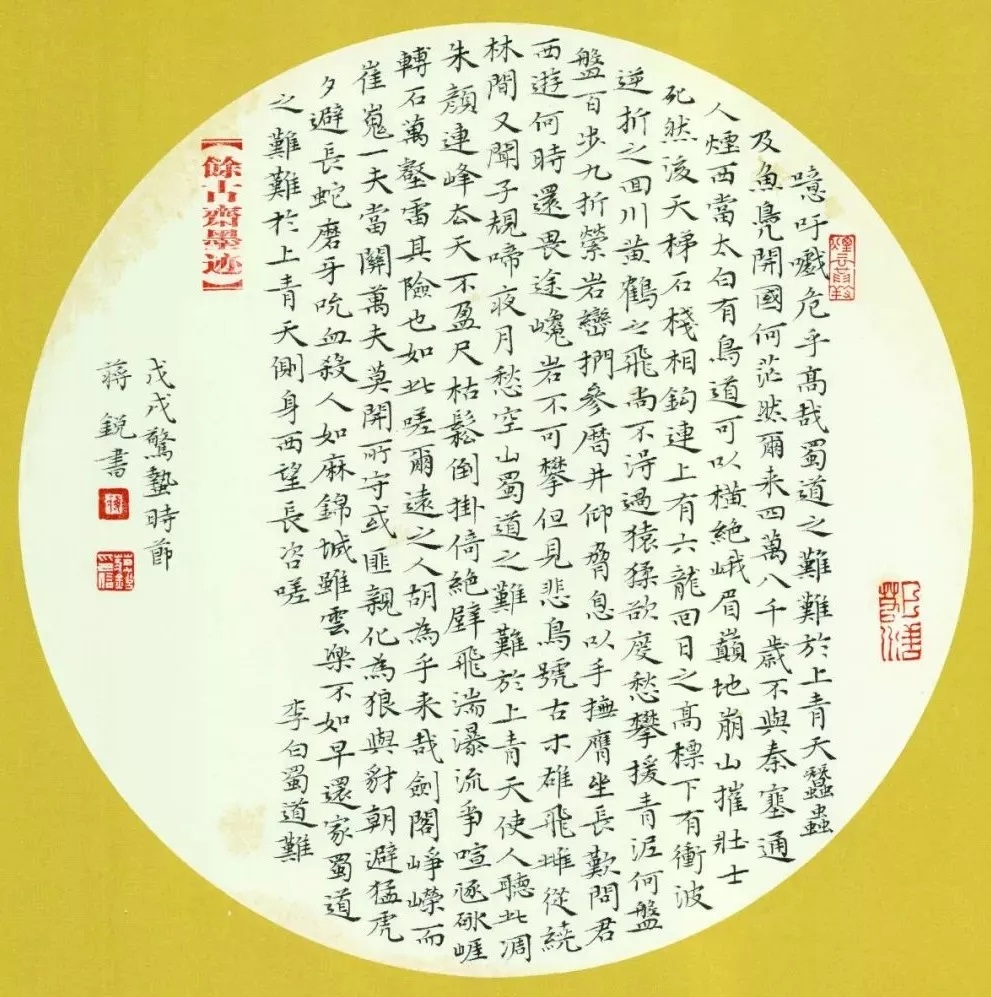 噫吁嚱危乎高哉蜀道之難難於上青天蠶蟲
及魚鳧開國何茫然爾来四萬八千歲不與秦塞通
人煙西當太白有鳥道可以橫絶峨眉巔地崩山摧壯士
死然後天梯石棧相鈎連上有六龍回日之高標下有衝波
逆折之回川黃鶴之飛尚不得過猿猱欲度愁攀援青泥何盤
盤百步九折縈岩巒捫參曆井仰脅息以手撫膺坐長歎問君
西遊何時還畏途巉岩不可攀但見悲鳥號古木雄飛雌從繞
林間又聞子規啼夜月愁空山蜀道之難難於上青天使人聽此凋
朱顏連峰去天不盈尺枯鬆倒掛倚絶壁飛湍瀑流爭喧豗砯崖
轉石萬壑雷其險也如此嗟爾遠之人胡為乎来哉劍閣崢嶸而
崔嵬一夫當關萬夫莫開所守或匪親化為狼與豺朝避猛虎
夕避長蛇磨牙吮血殺人如麻錦城雖雲樂不如早還家蜀道
之難難於上青天側身西望長咨嗟 李白蜀道難
【餘古齋墨迹】
戊戌驚蟄時節
蔣銳書